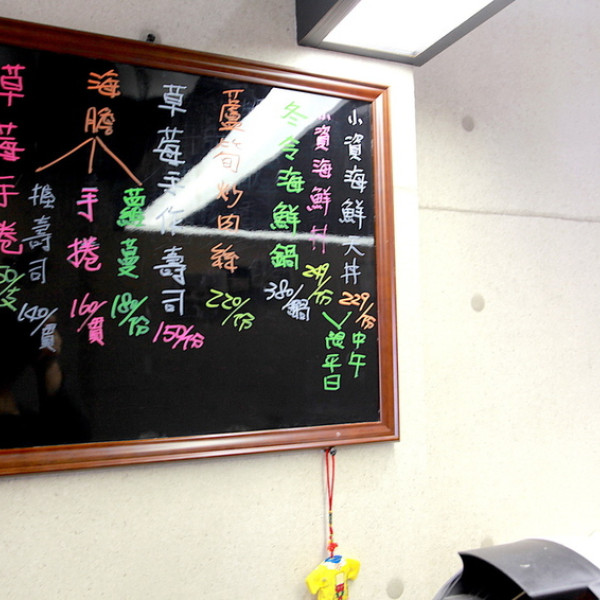 小資海鮮大丼
229/份
小資海鮮丼
249/份
中午
限平日
冬令海鮮鍋
380/鍋
蘆筍炒肉絲
220/份
草莓手作壽司
150/份
海膽
蘿蔓
180/份
手捲
160/貫
握壽司
140/貫
草莓手捲